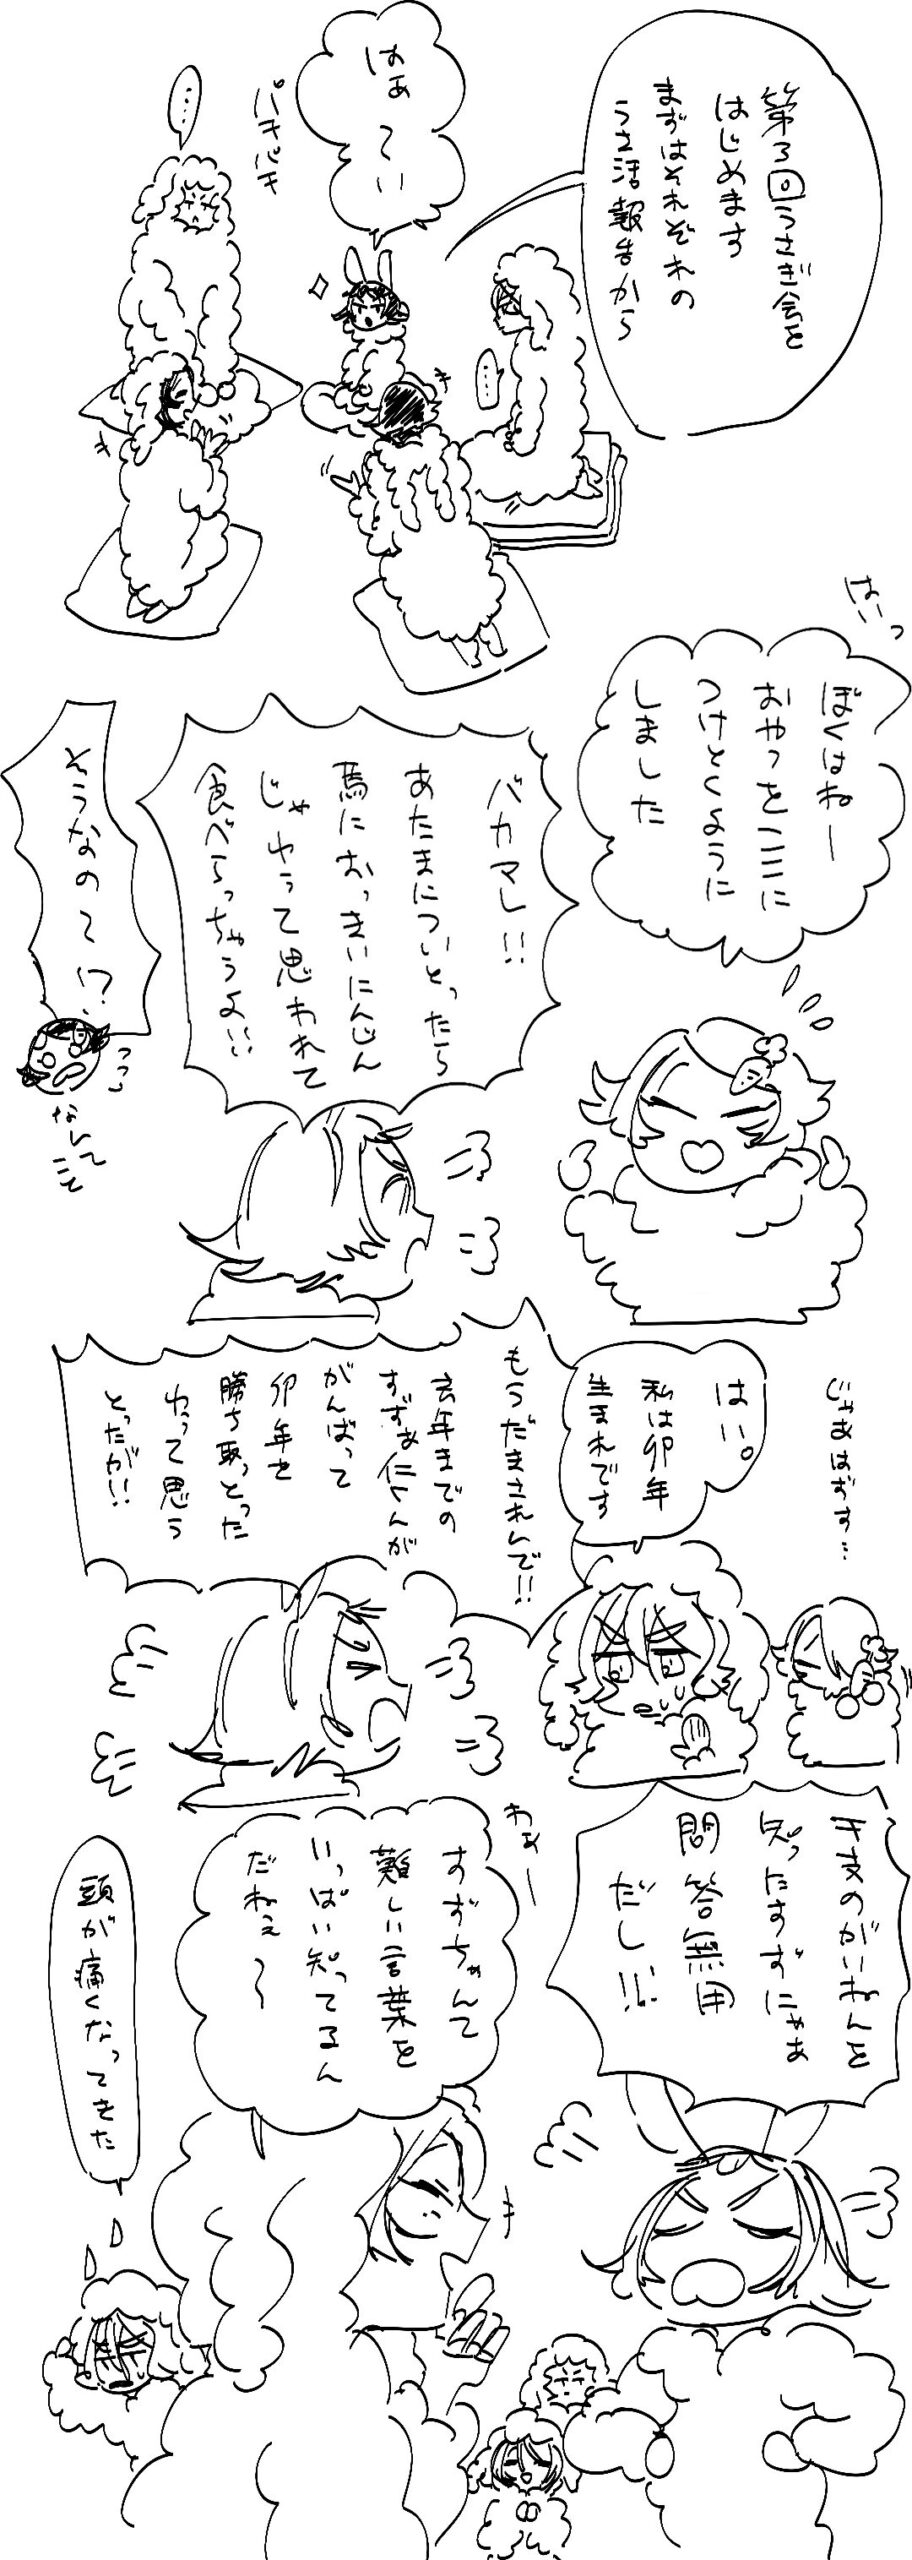 第3回うさぎ会を
はじめます
まずはそれぞれの
うさ活報告から
はぁ〜い
パキパキ
……
……
はいっ
ぼくはねー
おやつをここに
つけとくように
しました
バカマレ!!
あたまについとったら
馬におっきいにんじん
じゃわって思われて
食べらっちゃうよ!!
そうなのて!?
なんてこと
じゃあはずす…
はい。
私は卯年
生まれです
もうだまされんで!!
去年までの
すずぁ仁くんが
がんばって
卯年を
勝ち取っとった
わって思う
とったが!!
干支のがいねんを
知ったすずにゃあ
問答無用
だし!!
わぁー
すずちゃんて
難しい言葉を
いっぱい知ってるん
だねぇ〜
頭が痛くなってきた